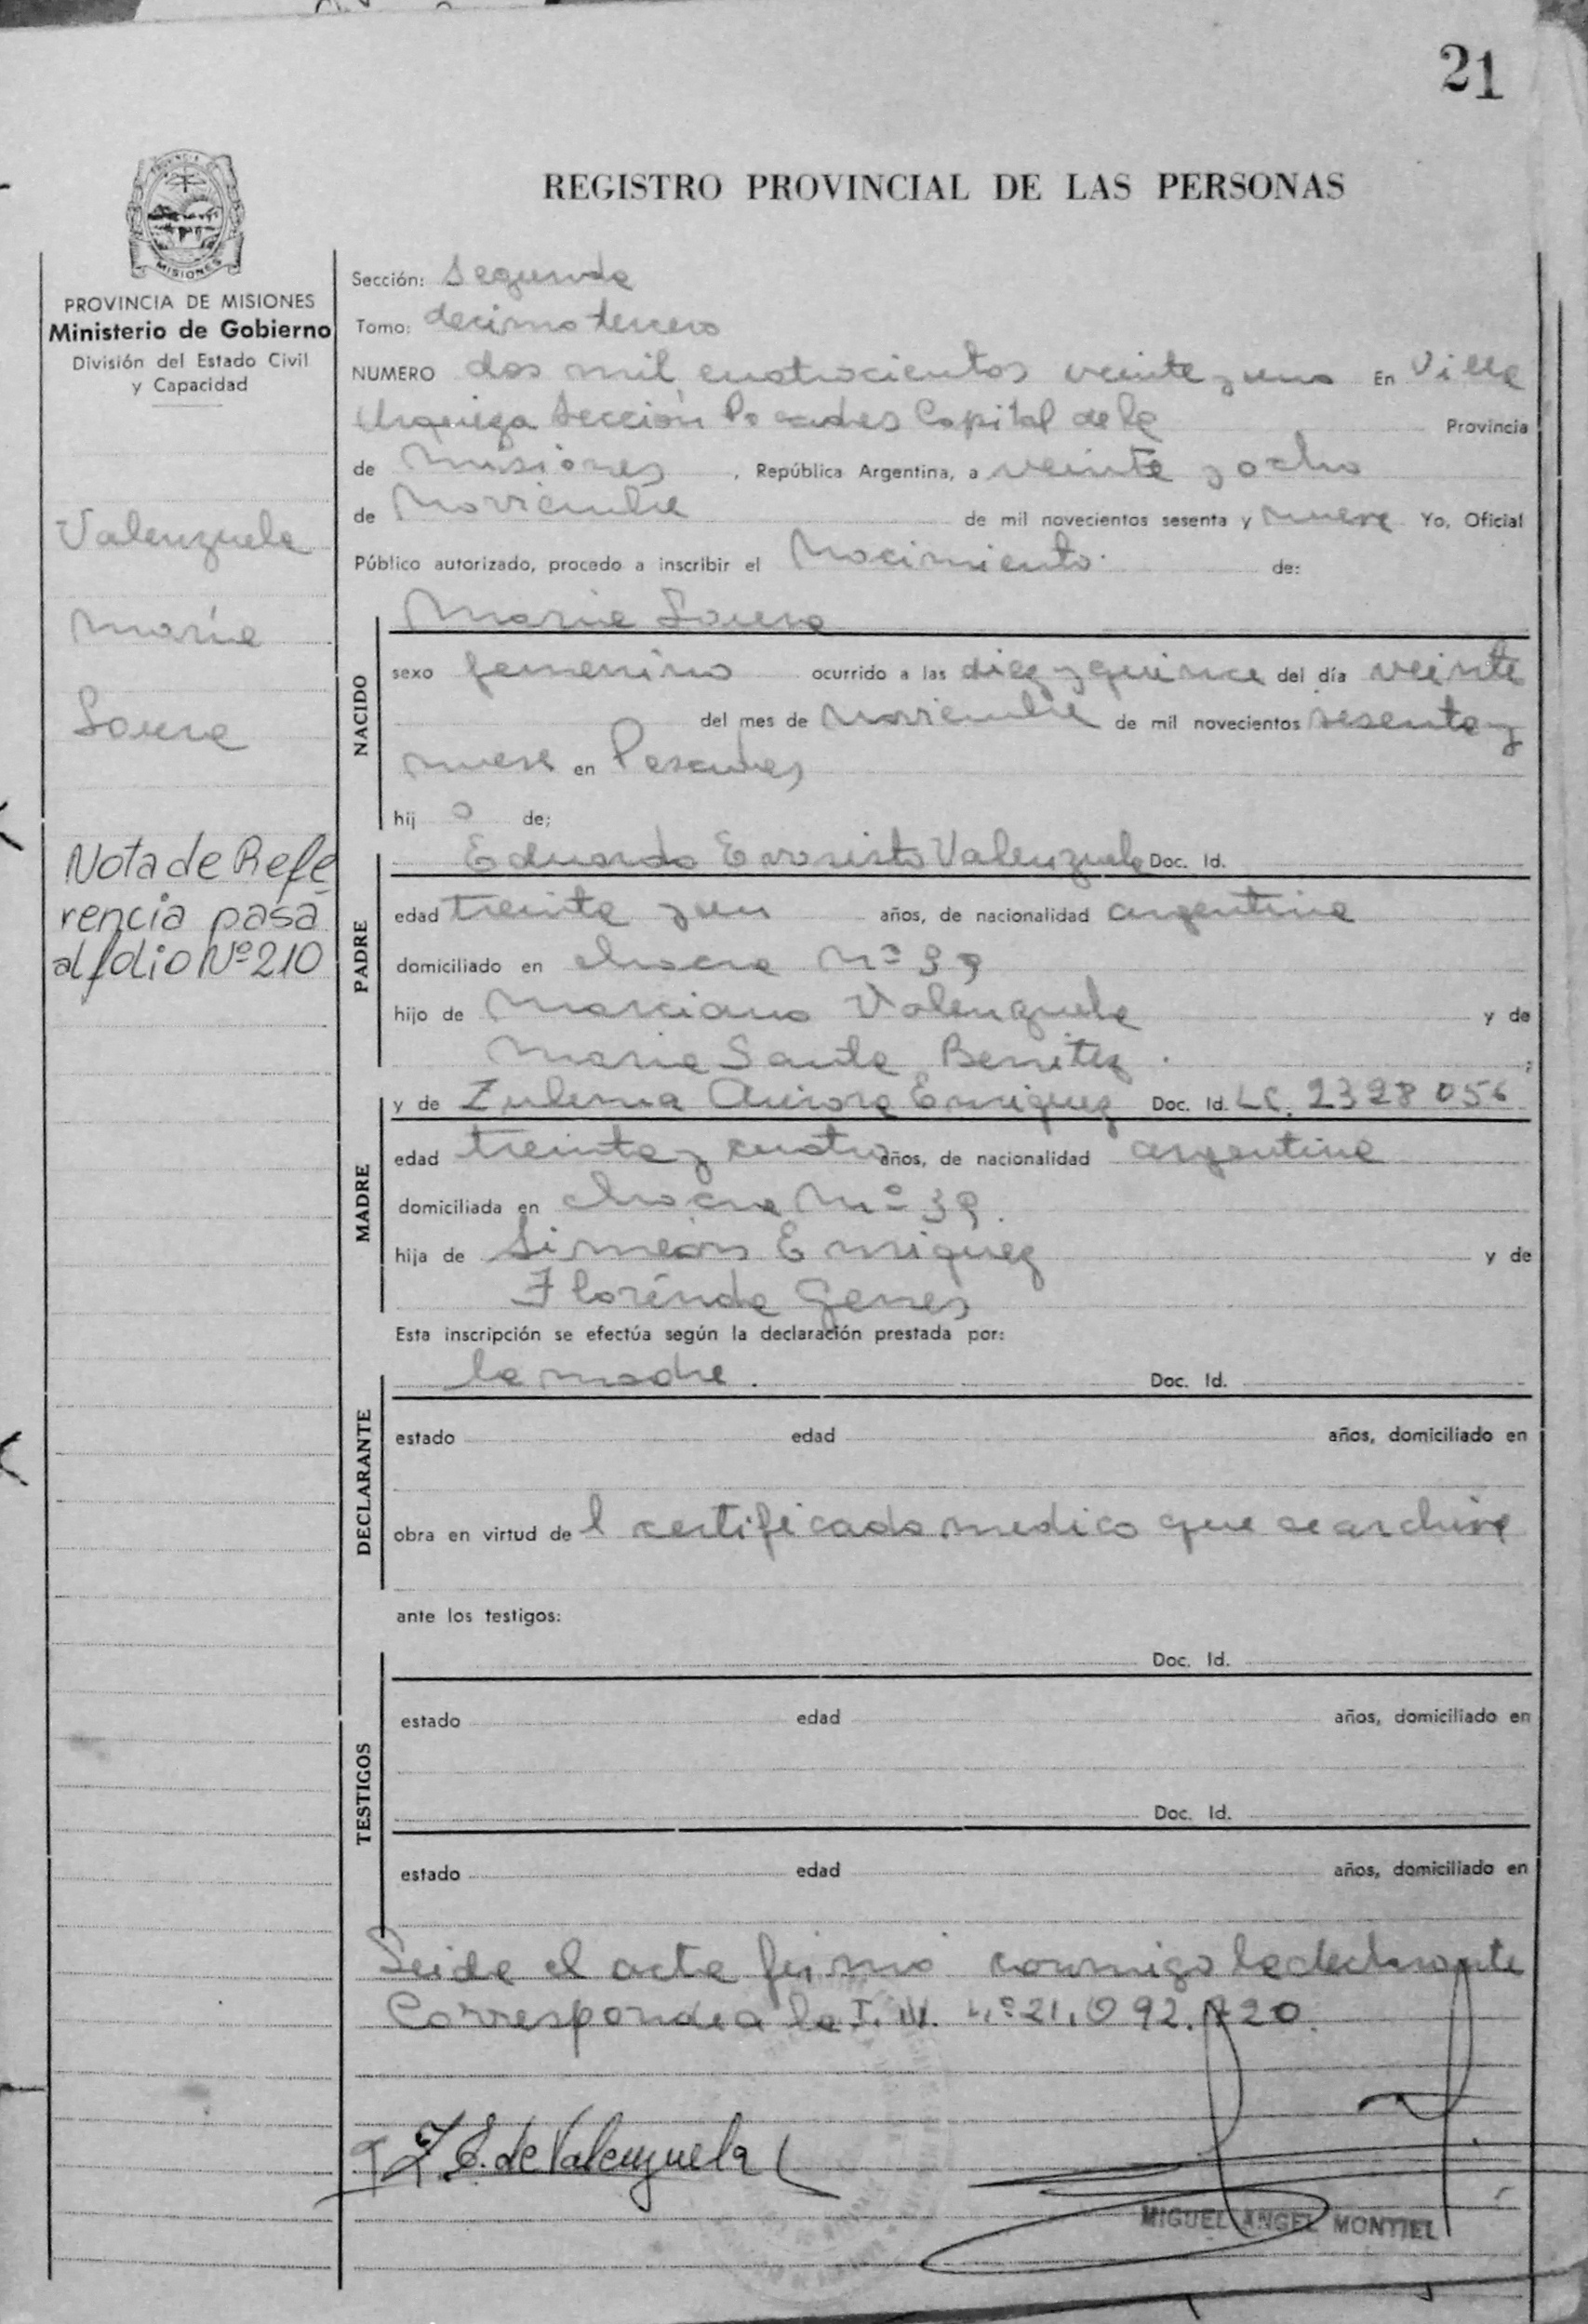 21
REGISTRO PROVINCIAL DE LAS PERSONAS
MISIONES
PROVINCIA DE MISIONES
Ministerio de Gobierno
División del Estado Civil
y Capacidad
Valenzuela
María
Laura
Nota de Refe
rencia pasa
al folio Nº 210
Sección: Segunda
Tomo: decimo tercero
NUMERO dos mil cuatrocientos veinte y uno En Villa
Urquiza Sección Posadas Capital de la Provincia
de Misiones, República Argentina, a veinte y ocho
de Noviembre de mil novecientos sesenta y nueve Yo, Oficial
Público autorizado, procedo a inscribir el Nacimiento de:
NACIDO
María Laura
sexo femenino ocurrido a las diez y quince del día veinte
del mes de noviembre de mil novecientos sesenta y
nueve en Posadas
hij a de;
PADRE
Eduardo Evaristo Valenzuela Doc. Id.
edad treinta y un años, de nacionalidad argentina
domiciliado en chacra Nº 39
hijo de Marciano Valenzuela y de
María Santa Benitez.;
MADRE
y de Zulema Aurora Enriquez Doc. Id. L.C. 2328056
edad treinta y cuatro años, de nacionalidad argentina
domiciliada en chacra Nº 39.
hija de Simeón Enriquez y de
Florinda Genes
Esta inscripción se efectúa según la declaración prestada por:
DECLARANTE
la madre. Doc. Id.
estado edad años, domiciliado en
obra en virtud de l certificado medico que se archiva
ante los testigos:
TESTIGOS
Doc. Id.
estado edad años, domiciliado en
Doc. Id.
estado edad años, domiciliado en
Leida el acta firmó conmigo la declarante
Corresponde a la I. M. nº 21.092.720.
Z. E. de Valenzuela
MIGUEL ANGEL MONTIEL